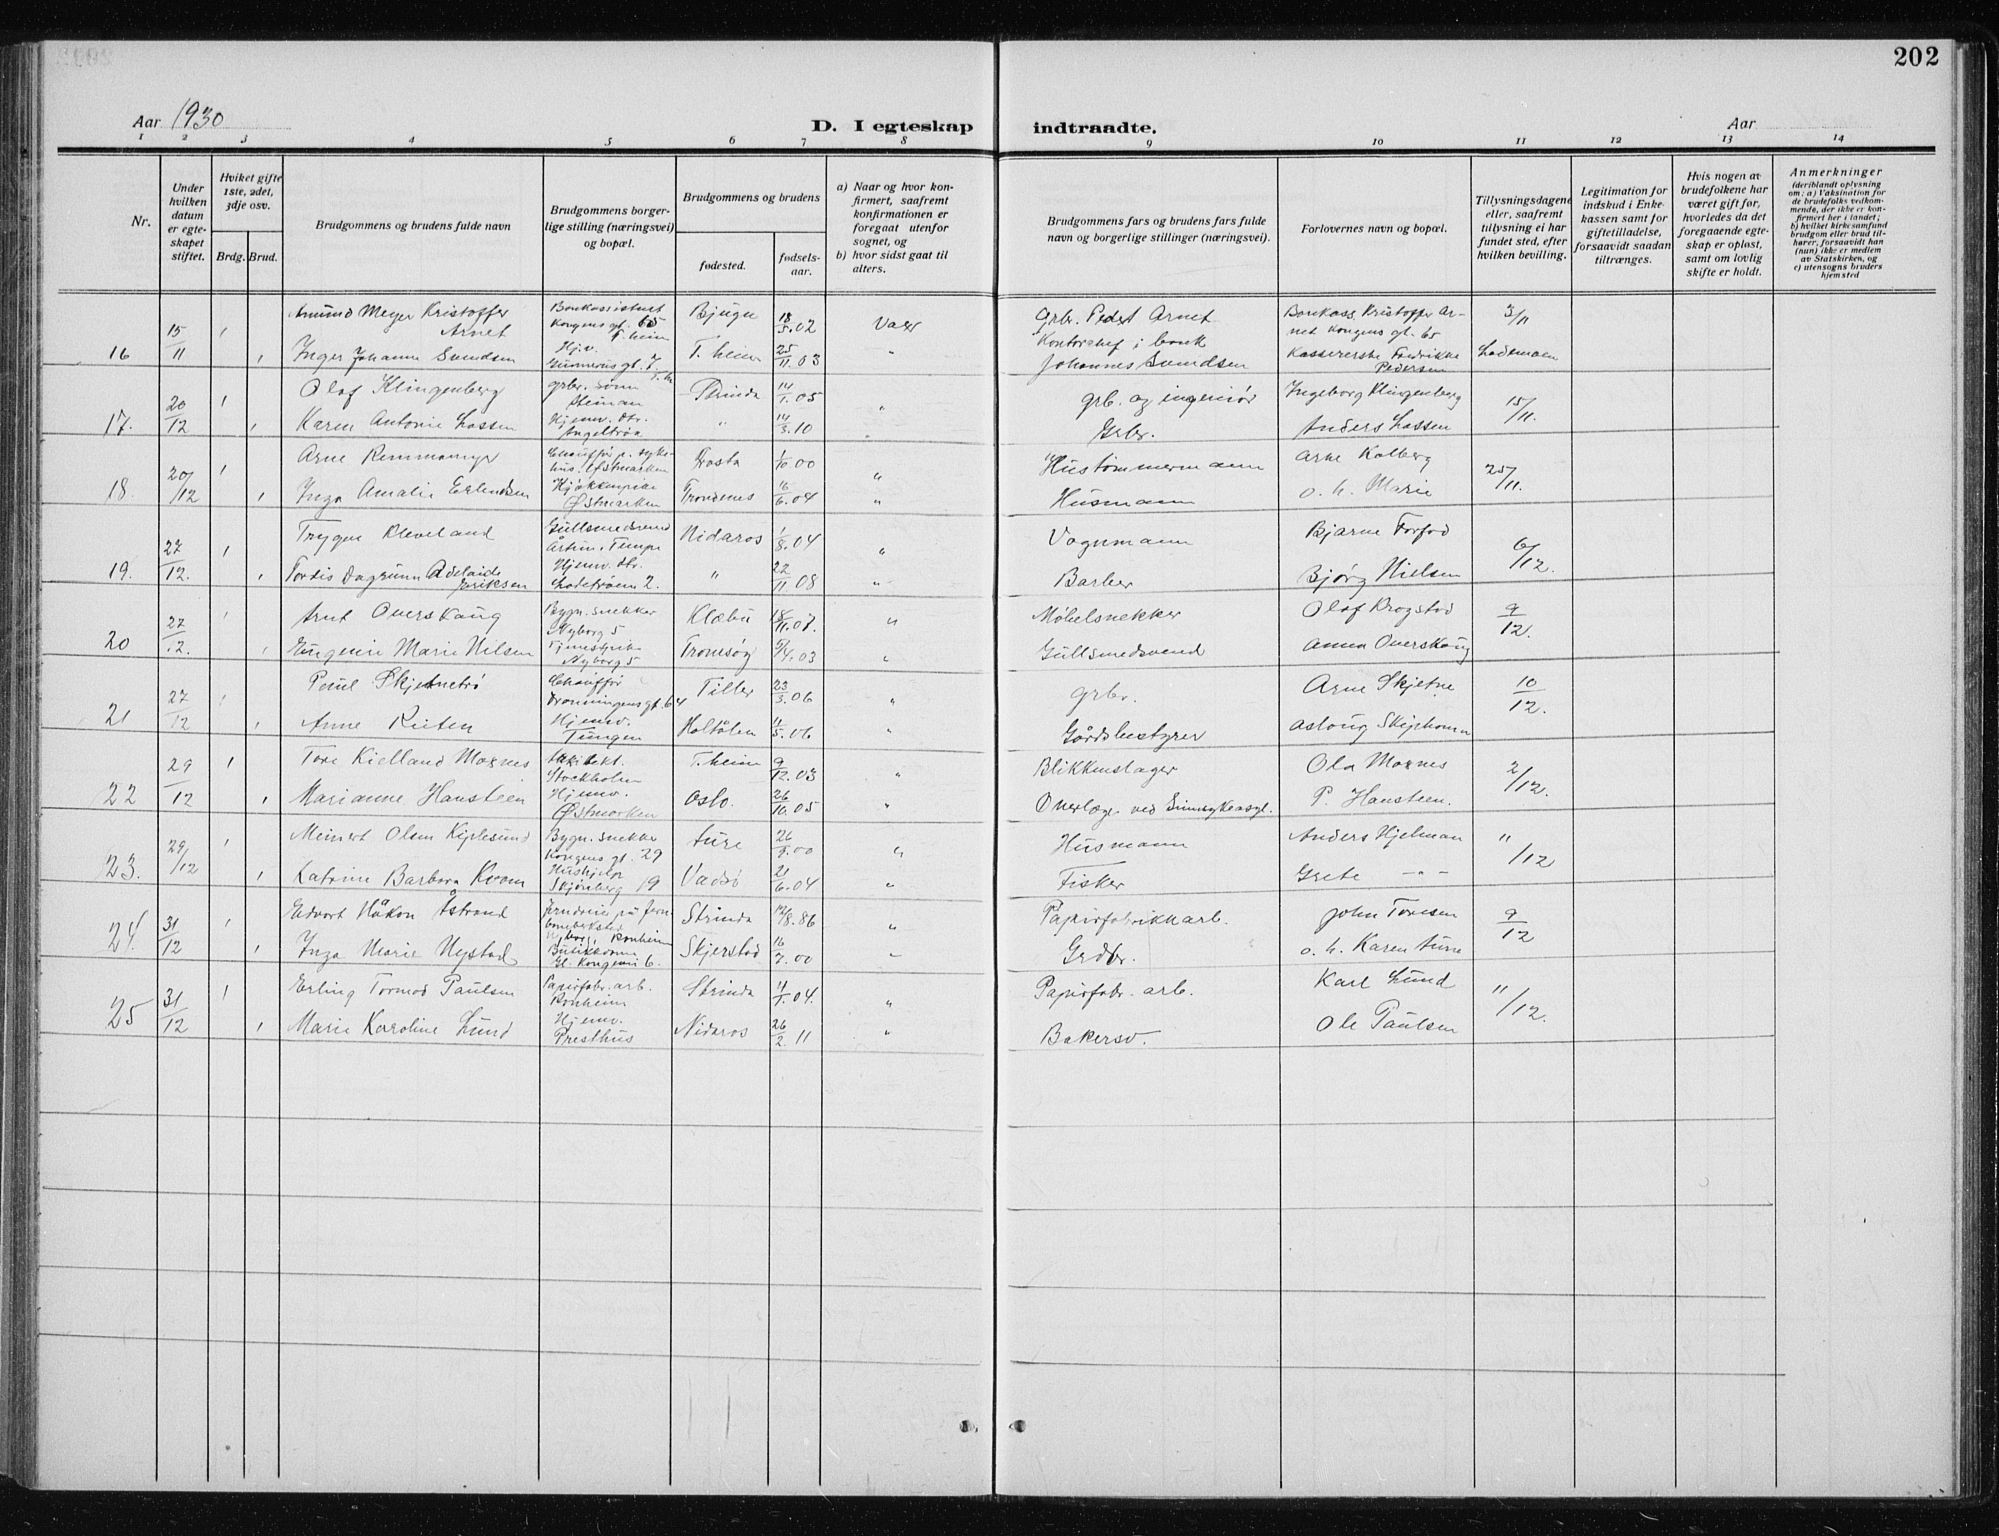 202
Aar 1930
D. I egteskap indtraadte.
Aar
1 2 3 4 5 6 7 8 9 10 11 12 13 14
Nr.
Under hvilken datum er egteskapet stiftet.
Hvilket gifte 1ste, 2det, 3dje osv.
Brdg. Brud.
Brudgommens og brudens fulde navn
Brudgommens borgerlige stilling (næringsvei) og bopæl.
Brudgommens og brudens
fødested.
fødselsaar.
a) Naar og hvor konfirmert, saafremt konfirmationen er foregaat utenfor sognet, og
b) hvor sidst gaat til alters.
Brudgommens fars og brudens fars fulde navn og borgerlige stillinger (næringsvei).
Forlovernes navn og bopæl.
Tillysningsdagene eller, saafremt tillysning ei har fundet sted, efter hvilken bevilling.
Legitimation for indskud i Enkekassen samt for giftetilladelse, forsaavidt saadan tiltrænges.
Hvis nogen av brudefolkene har været gift før, hvorledes da det foregaaende egteskap er opløst, samt om lovlig skifte er holdt.
Anmerkninger (deriblandt oplysning om: a) Vaksination for de brudefolks vedkommende, der ikke er konfirmert her i landet; b) hvilket kirkesamfund brudgom eller brud tilhører, forsaavidt han (hun) ikke er medlem av Statskirken, og c) utensogns bruders hjemsted
16 15/11 1 Amund Meyer Kristoffer Arnet Bankassistent Kongens gt. 65 T.heim Bjugn 18/5.02 Grb. Peder Arnet Bankass. Kristoffer Arnet Kongens gt. 65 3/11
1 Inger Johanne Svendsen Hjv. Gunnerus gt. 7 T.heim 25/11 03 " Kontorchef i bank Johannes Svendsen Kassererske Fredrikke Pedersen Lademoen
17. 20/12 1 Olaf Klingenberg grbr. sønn Steinan Strinda 14/1.05 " grb. og ingeniør Ingeborg Klingenberg 15/11.
1 Karen Antonie Lassen Hjemv. dtr. Angeltrøa " 14/3.10 Grbr. Anders Lassen
18. 20/12 1 Arne Remmamyr Østmarken 1/10.00 " Hustømmermann Arne Kolberg 25/11.
1 Inga Amalie Erlandsen Østmarken Trondenes 16/6.04 " Husmann o. h. Marie
19. 27/12. 1 Trygve Kleveland Gullsmedsvend Tempe Nidaros 1/8.04 " Vognmann Bjarne Forfod 6/12.
1 Tordis Dagrunn Adelaide Eriksen Hjemv. dtr. 2. " 22/11 08 " Barber Bjørg Nielsen
20 27/12. 1 Arnt Overskaug Bygn. snekker Nyborg 5 Klæbu 18/11.07. " Møbelsnekker Olaf Krogstad 9/12.
1 Eugenie Marie Nilsen Nyborg 5 Tromsøy 5/4.03 " Gullsmedsvend Anna Overskaug
21 27/12 1 Paul Skjetnetrø Chauffør Dronningens gt. 64 Tiller 23/3.06 " grbr. Arne Skjetne 10/12.
1 Anne Ruten Hjemv. Tungen Holtålen 11/5.06 " Gårdsbestyrer Aslaug
22 29/12 1 Tore Kielland Moxnes Arkitekt. Stockholm T.heim 9/12.03 " Blikkenslager Ola Moxnes 2/12.
1 Marianne Hansteen Hjemv. Østmarken Oslo. 26/10.05 " Overlæge ved Sinnsykeasyl. P. Hansteen.
23. 29/12 1 Meinert Olsen Bygn. snekker Kongens gt. 29 Aure 26/9.00 " Husmann Anders Hjelman 11/12
1 Katrine Barbara Kvam Hushjelp Skjønberg 19 Vadsø 21/6.04 " Fisker Grete — " —
24. 31/12 1 Edvart Håkon Åstrand Ranheim Strinda 12/8.86 " Papirfabrikkarb. John Tonesen 9/12
1 Inga Marie Nystad Butikkdame Gl. Kongevei 6. Skjerstad 16/7.00 " Grdbr. o. h. Karen Aune
25 31/12 1 Erling Tormod Paulsen Papirfabr. arb. Ranheim Strinda 11/1.04. " Papirfabr. arb. Karl Lund 11/12.
1 Marie Karoline Lund Hjemv. Presthus Nidaros 26/2. 11 " Bakersv. Ole Paulsen